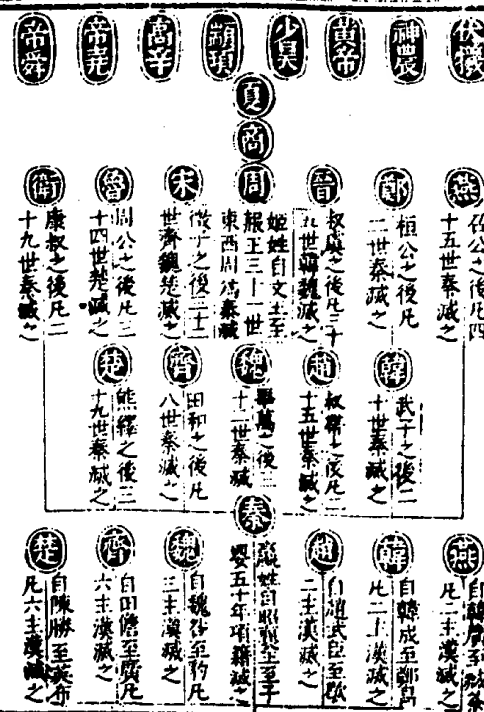 伏犧
神農
黃帝
少昊
顓頊
高辛
帝堯
帝舜
夏
商
周
姬姓自文王至
赧王三十一世
東西周為秦滅
燕
公之後凡四
十五世秦滅之
鄭
桓公之後凡
二世秦滅之
晉
叔虞之後凡三十
九世韓魏滅之
宋
微子之後三十二
世齊魏楚滅之
魯
周公之後凡三
十四世楚滅之
衛
康叔之後凡二
十九世秦滅之
韓
武子之後二
十世秦滅之
趙
叔帶之後凡二
十五世秦滅之
魏
畢萬之後二
十二世秦滅
齊
田和之後凡
八世秦滅之
楚
熊繹之後二
十九世秦滅之
秦
嬴姓自昭襄王至子
嬰五十年項籍滅之
燕
自韓廣至臧荼
凡二主漢滅之
韓
自韓成至鄭昌
凡二主漢滅之
趙
自趙武臣至歇
二主漢滅之
魏
自魏咎至豹凡
三主漢滅之
齊
自田儋至廣凡
六主漢滅之
楚
自陳勝至英布
凡六主漢滅之